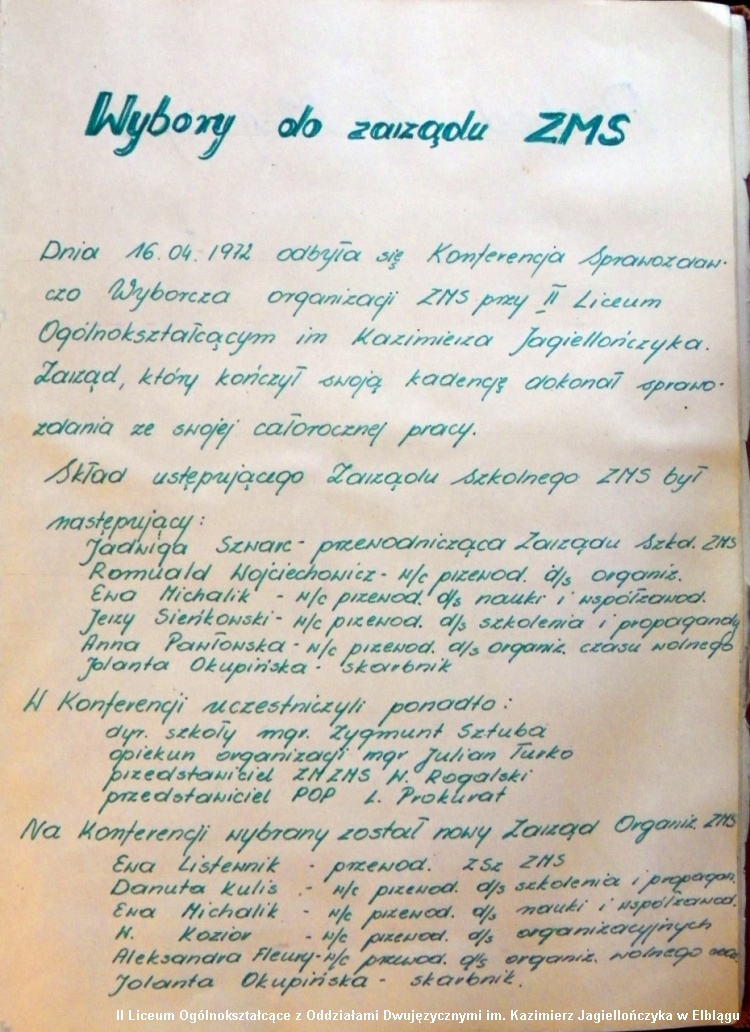 Wybory do zarządu ZMS
Dnia 16.04.1972 odbyła się Konferencja Sprawozdaw-
czo Wyborcza organizacji ZMS przy II Liceum
Ogólnokształcącym im Kazimierza Jagiellończyka.
Zarząd, który kończył swoją kadencję dokonał sprawo-
zdania ze swojej całorocznej pracy.
Skład ustępującego Zarządu Szkolnego ZMS był
następujący:
Jadwiga Szwarc - przewodnicząca Zarządu Szkol. ZMS
Romuald Wojciechowicz - w/c przewod. d/s organiz.
Ewa Michalik - w/c przewod. d/s nauki i współzawod.
Jerzy Sieńkowski - w/c przewod. d/s szkolenia i propagandy
Anna Pawłowska - w/c przewod. d/s organiz. czasu wolnego
Jolanta Okupińska - skarbnik
W Konferencji uczestniczyli ponadto:
dyr. szkoły mgr. Zygmunt Sztuba
opiekun organizacji mgr Julian Turko
przedstawiciel ZMZMS W. Rogalski
przedstawiciel POP L. Prokurat
Na Konferencji wybrany został nowy Zarząd Organiz. ZMS
Ewa Listewnik - przewod. ZSz ZMS
Danuta Kulis - w/c przewod. d/s szkolenia i propagan.
Ewa Michalik - w/c przewod. d/s nauki i współzawod.
W. Kozior - w/c przewod. d/s organizacyjnych
Aleksandra Fleury - w/c przewod. d/s organiz. wolnego
Jolanta Okupińska - skarbnik.
II Liceum Ogólnokształcące z Oddziałami Dwujęzycznymi im. Kazimierz Jagiellończyka w Elblągu